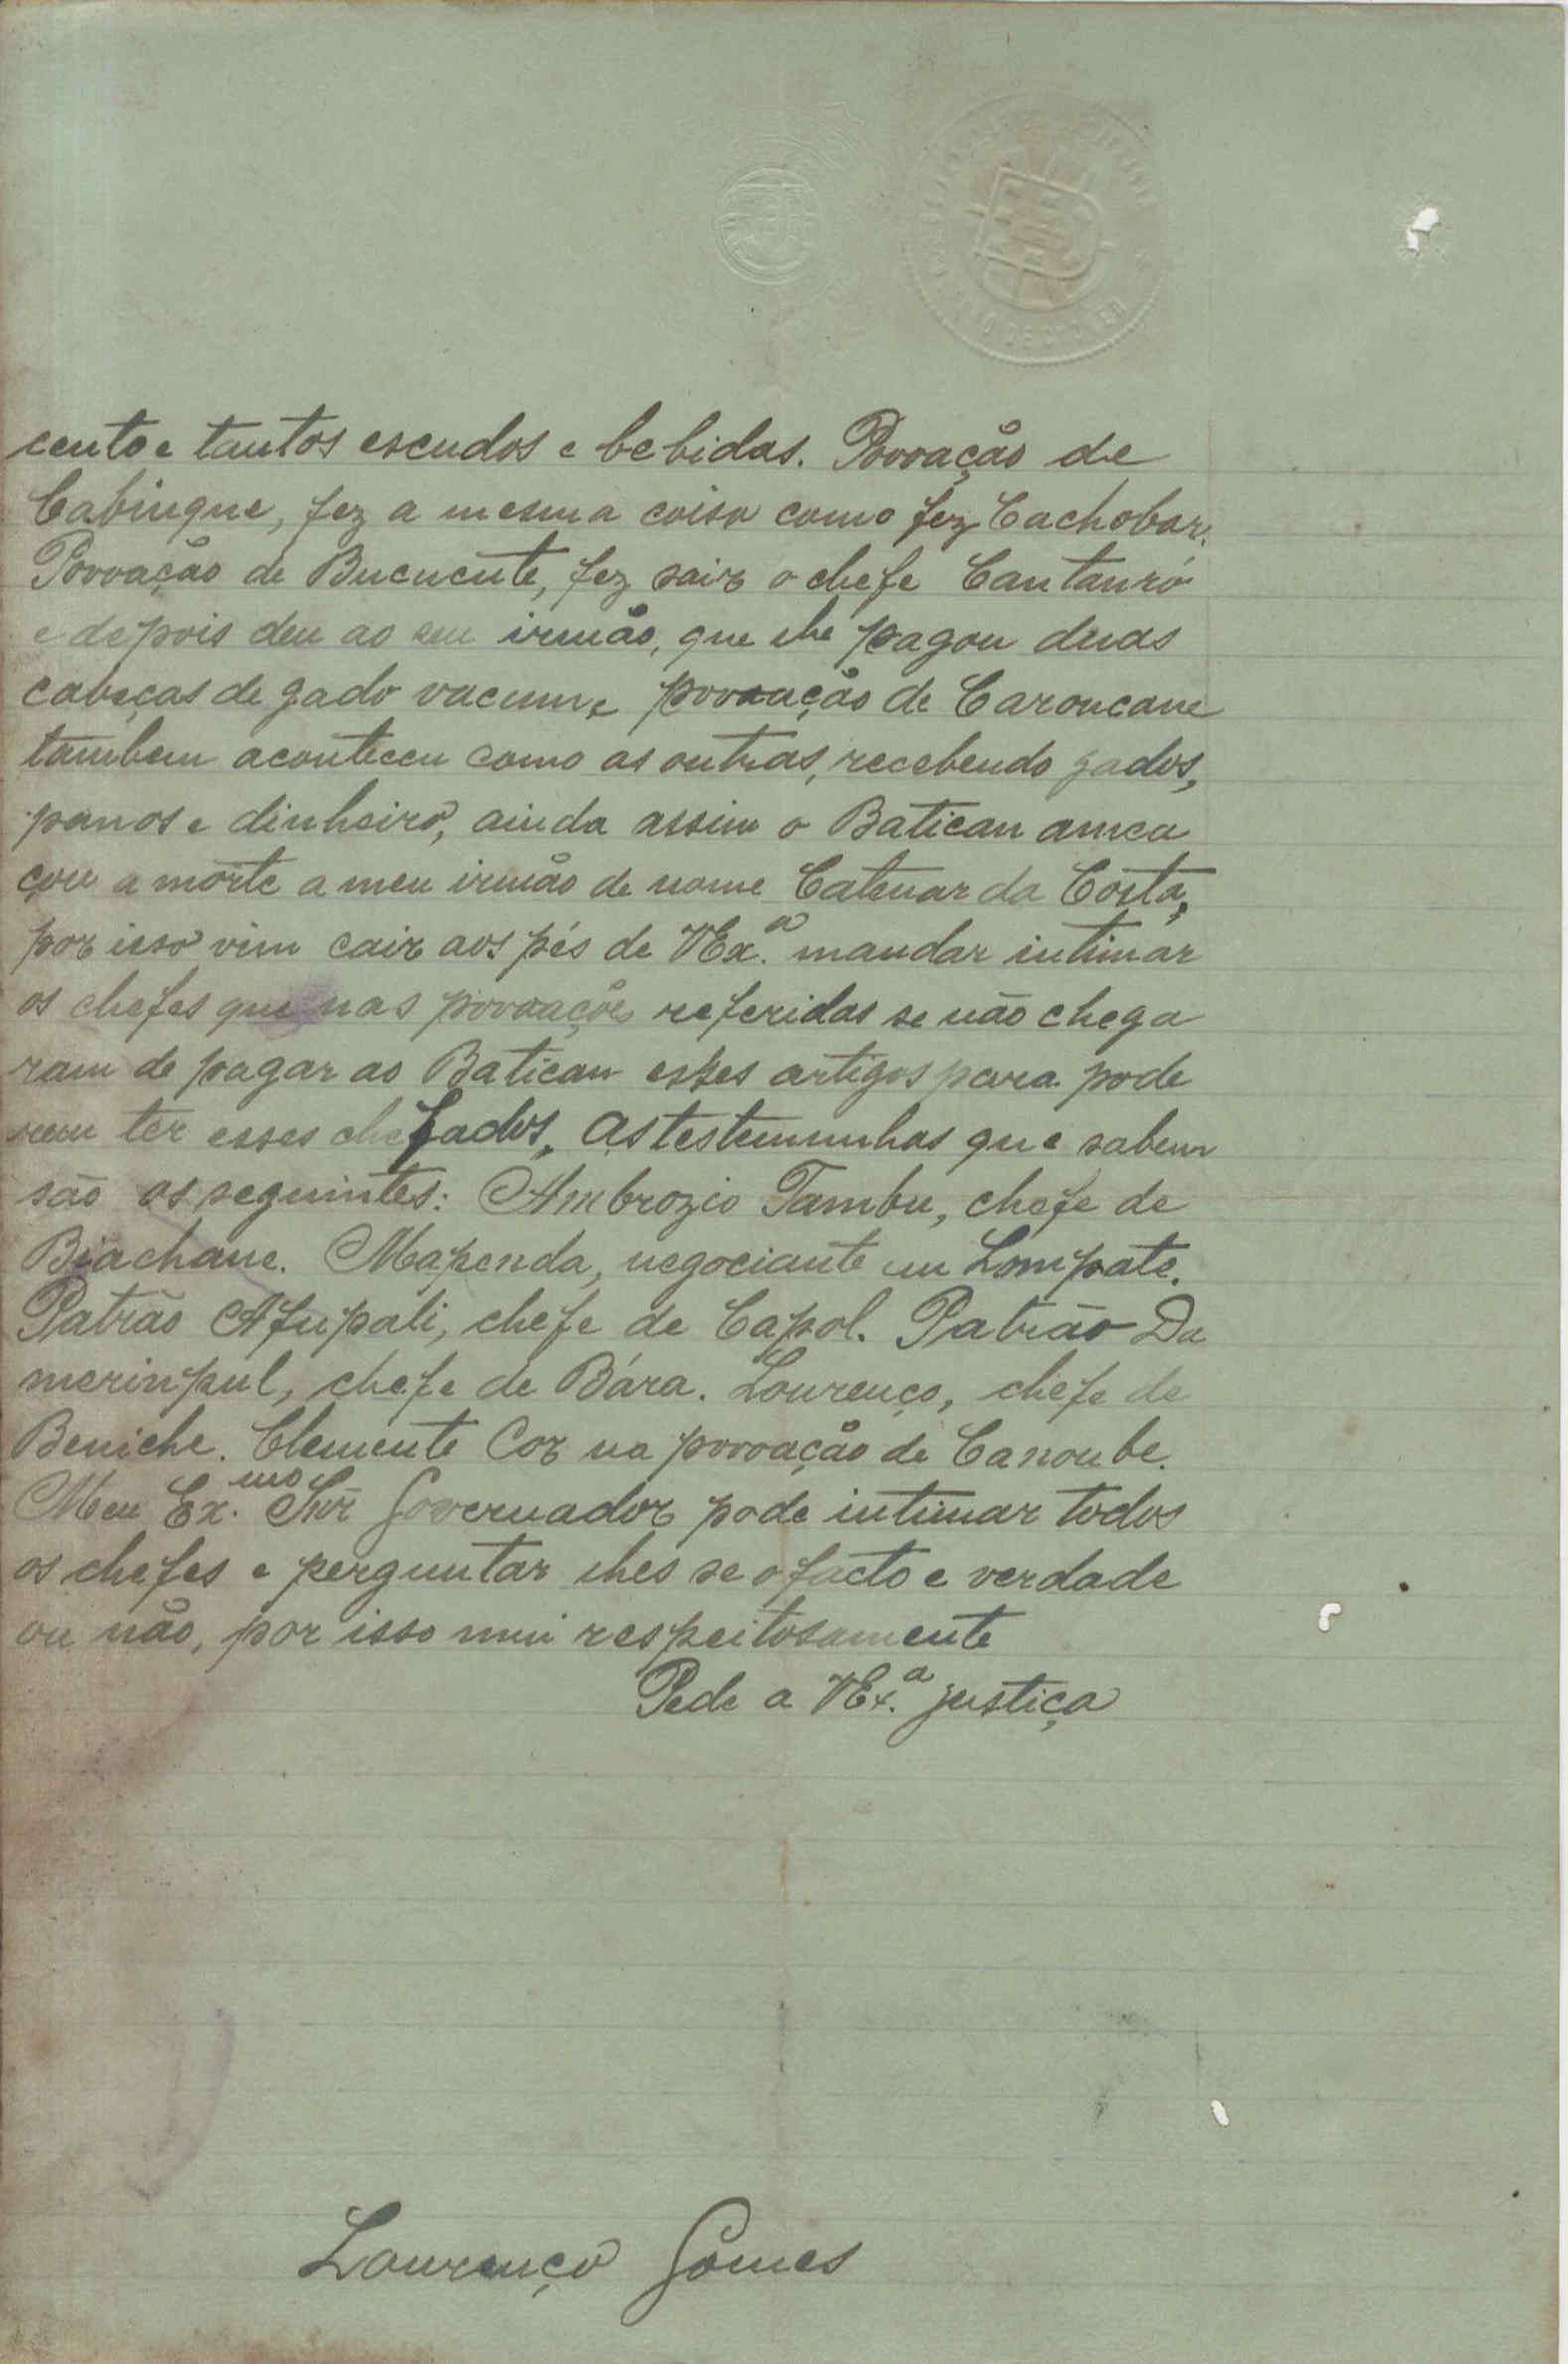 cento e tantos escudos e bebidas. Povoação de
Cabinque, fez a mesma coisa como fez Cachobar.
Povoação de Bucucute, fez sair o chefe Cantauró
e depois deu ao seu irmão, que lhe pagou duas
cabeças de gado vacum, e povoação de Caroucane
tambem aconteceu como as outras, recebendo gados,
panos e dinheiro, ainda assim o Batican amea
çou a morte a meu irmão de nome Catenar da Costa,
por isso vim cair aos pés de VEx.ª mandar intimar
os chefes que nas povoações referidas se não chega
ram de pagar ao Batican estes artigos para pode
rem ter esses chefados. As testemunhas que sabem
são os seguintes: Ambrozio Tambu, chefe de
Biachane. Mapenda, negociante em Lompate.
Patrão Afupali, chefe de Capol. Patrão Da
merinpul, chefe de Bára. Lourenço, chefe de
Beniche. Clemente Cor na povoação de Canoube.
Meu Ex.mo Snr Governador pode intimar todos
os chefes e perguntar lhes se o facto e verdade
ou não, por isso mui respeitosamente
Pede a VEx.ª justiça
Lourenço Gomes